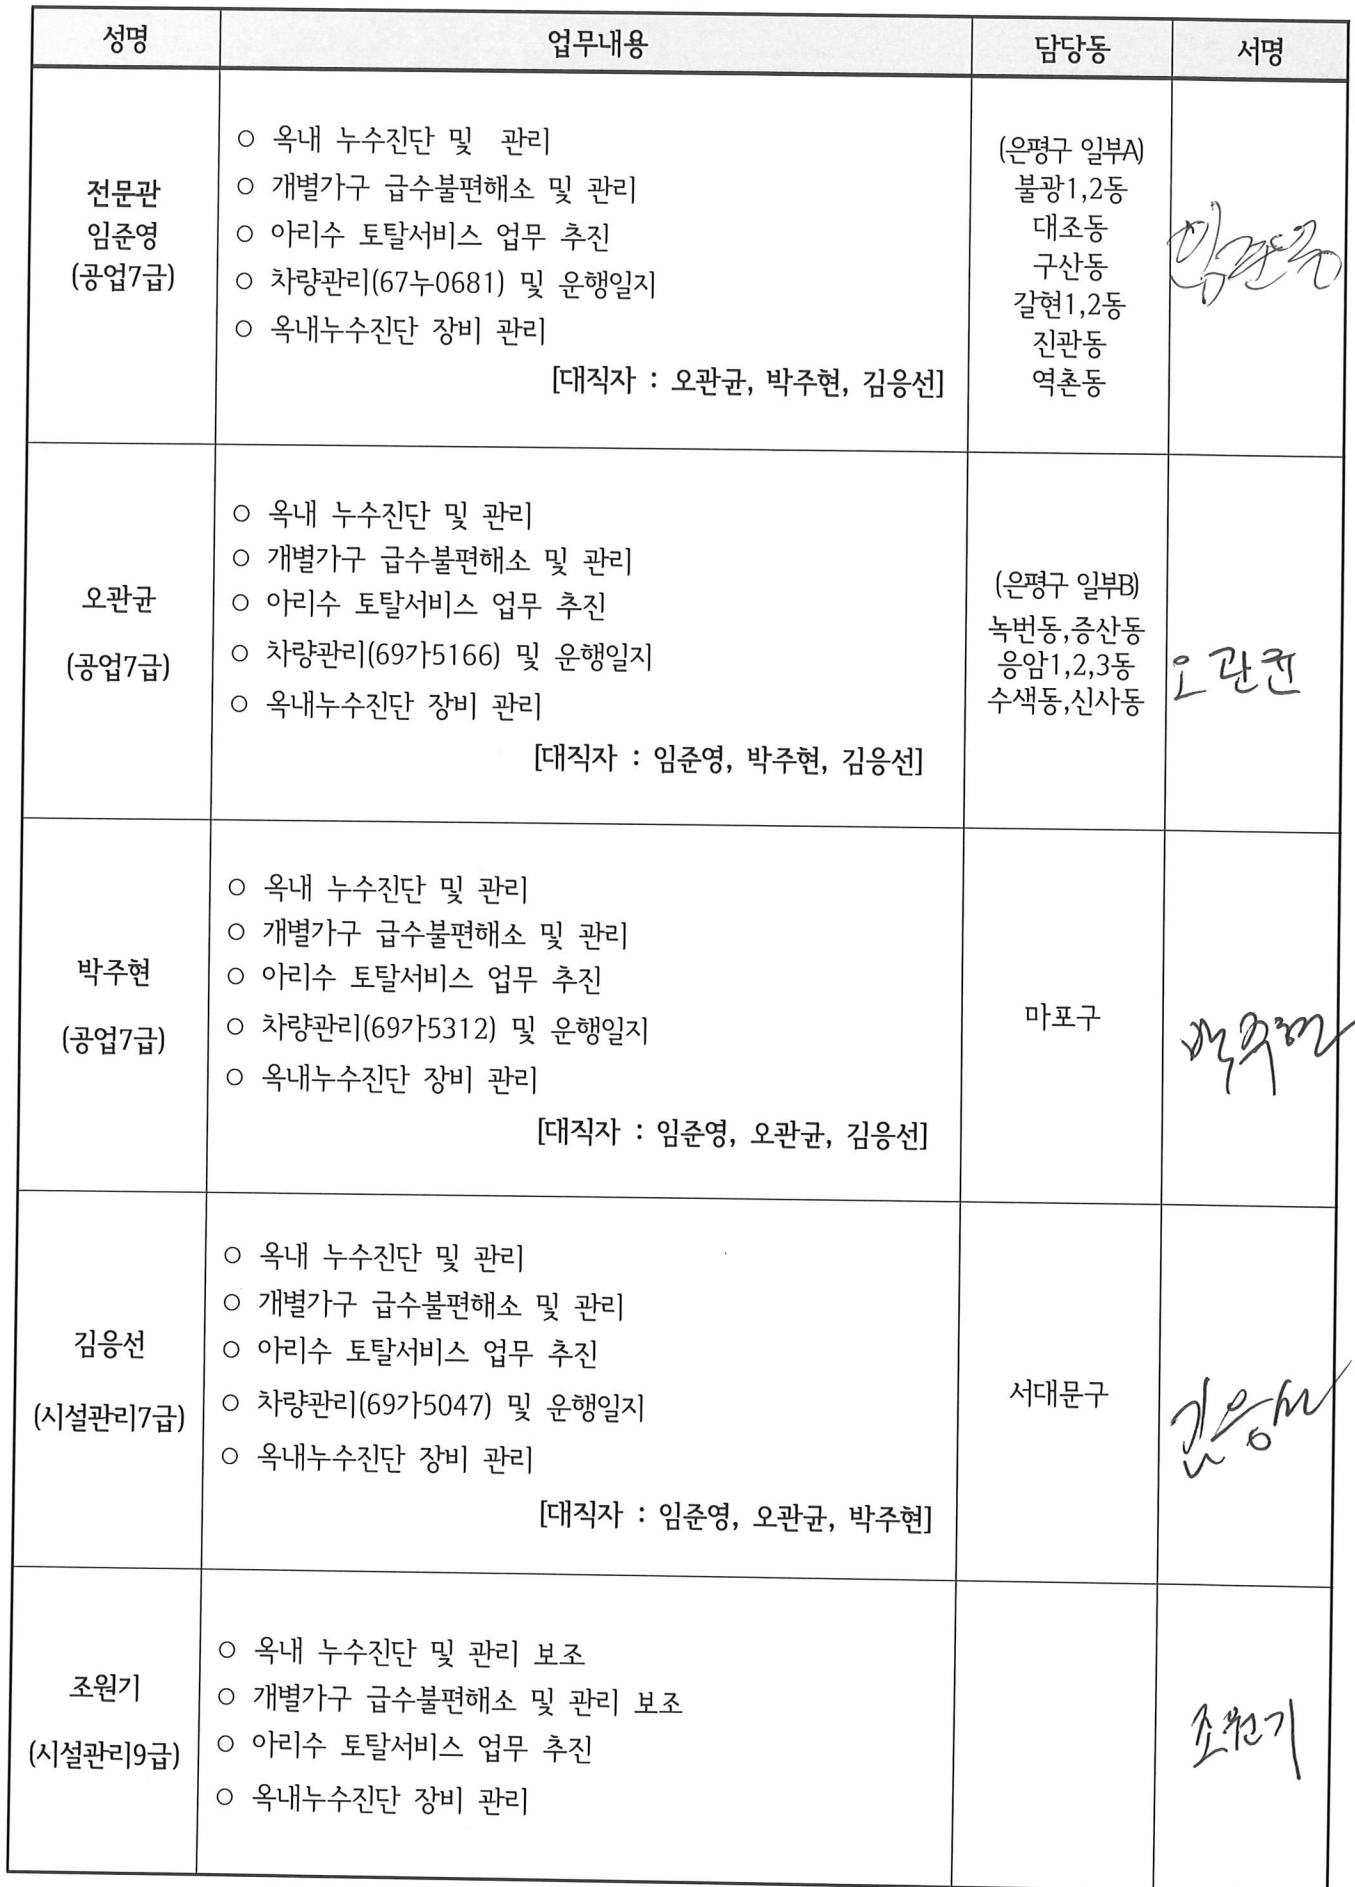 성명 업무내용 담당동 서명
전문관
임준영
(공업7급)
○ 옥내 누수진단 및 관리
○ 개별가구 급수불편해소 및 관리
○ 아리수 토탈서비스 업무 추진
○ 차량관리(67누0681) 및 운행일지
○ 옥내누수진단 장비 관리
[대직자 : 오관균, 박주현, 김응선]
(은평구 일부A)
불광1,2동
대조동
구산동
갈현1,2동
진관동
역촌동
임준영
오관균
(공업7급)
○ 옥내 누수진단 및 관리
○ 개별가구 급수불편해소 및 관리
○ 아리수 토탈서비스 업무 추진
○ 차량관리(69가5166) 및 운행일지
○ 옥내누수진단 장비 관리
[대직자 : 임준영, 박주현, 김응선]
(은평구 일부B)
녹번동,증산동
응암1,2,3동
수색동,신사동
오관균
박주현
(공업7급)
○ 옥내 누수진단 및 관리
○ 개별가구 급수불편해소 및 관리
○ 아리수 토탈서비스 업무 추진
○ 차량관리(69가5312) 및 운행일지
○ 옥내누수진단 장비 관리
[대직자 : 임준영, 오관균, 김응선]
마포구
박주현
김응선
(시설관리7급)
○ 옥내 누수진단 및 관리
○ 개별가구 급수불편해소 및 관리
○ 아리수 토탈서비스 업무 추진
○ 차량관리(69가5047) 및 운행일지
○ 옥내누수진단 장비 관리
[대직자 : 임준영, 오관균, 박주현]
서대문구
김응선
조원기
(시설관리9급)
○ 옥내 누수진단 및 관리 보조
○ 개별가구 급수불편해소 및 관리 보조
○ 아리수 토탈서비스 업무 추진
○ 옥내누수진단 장비 관리
조원기